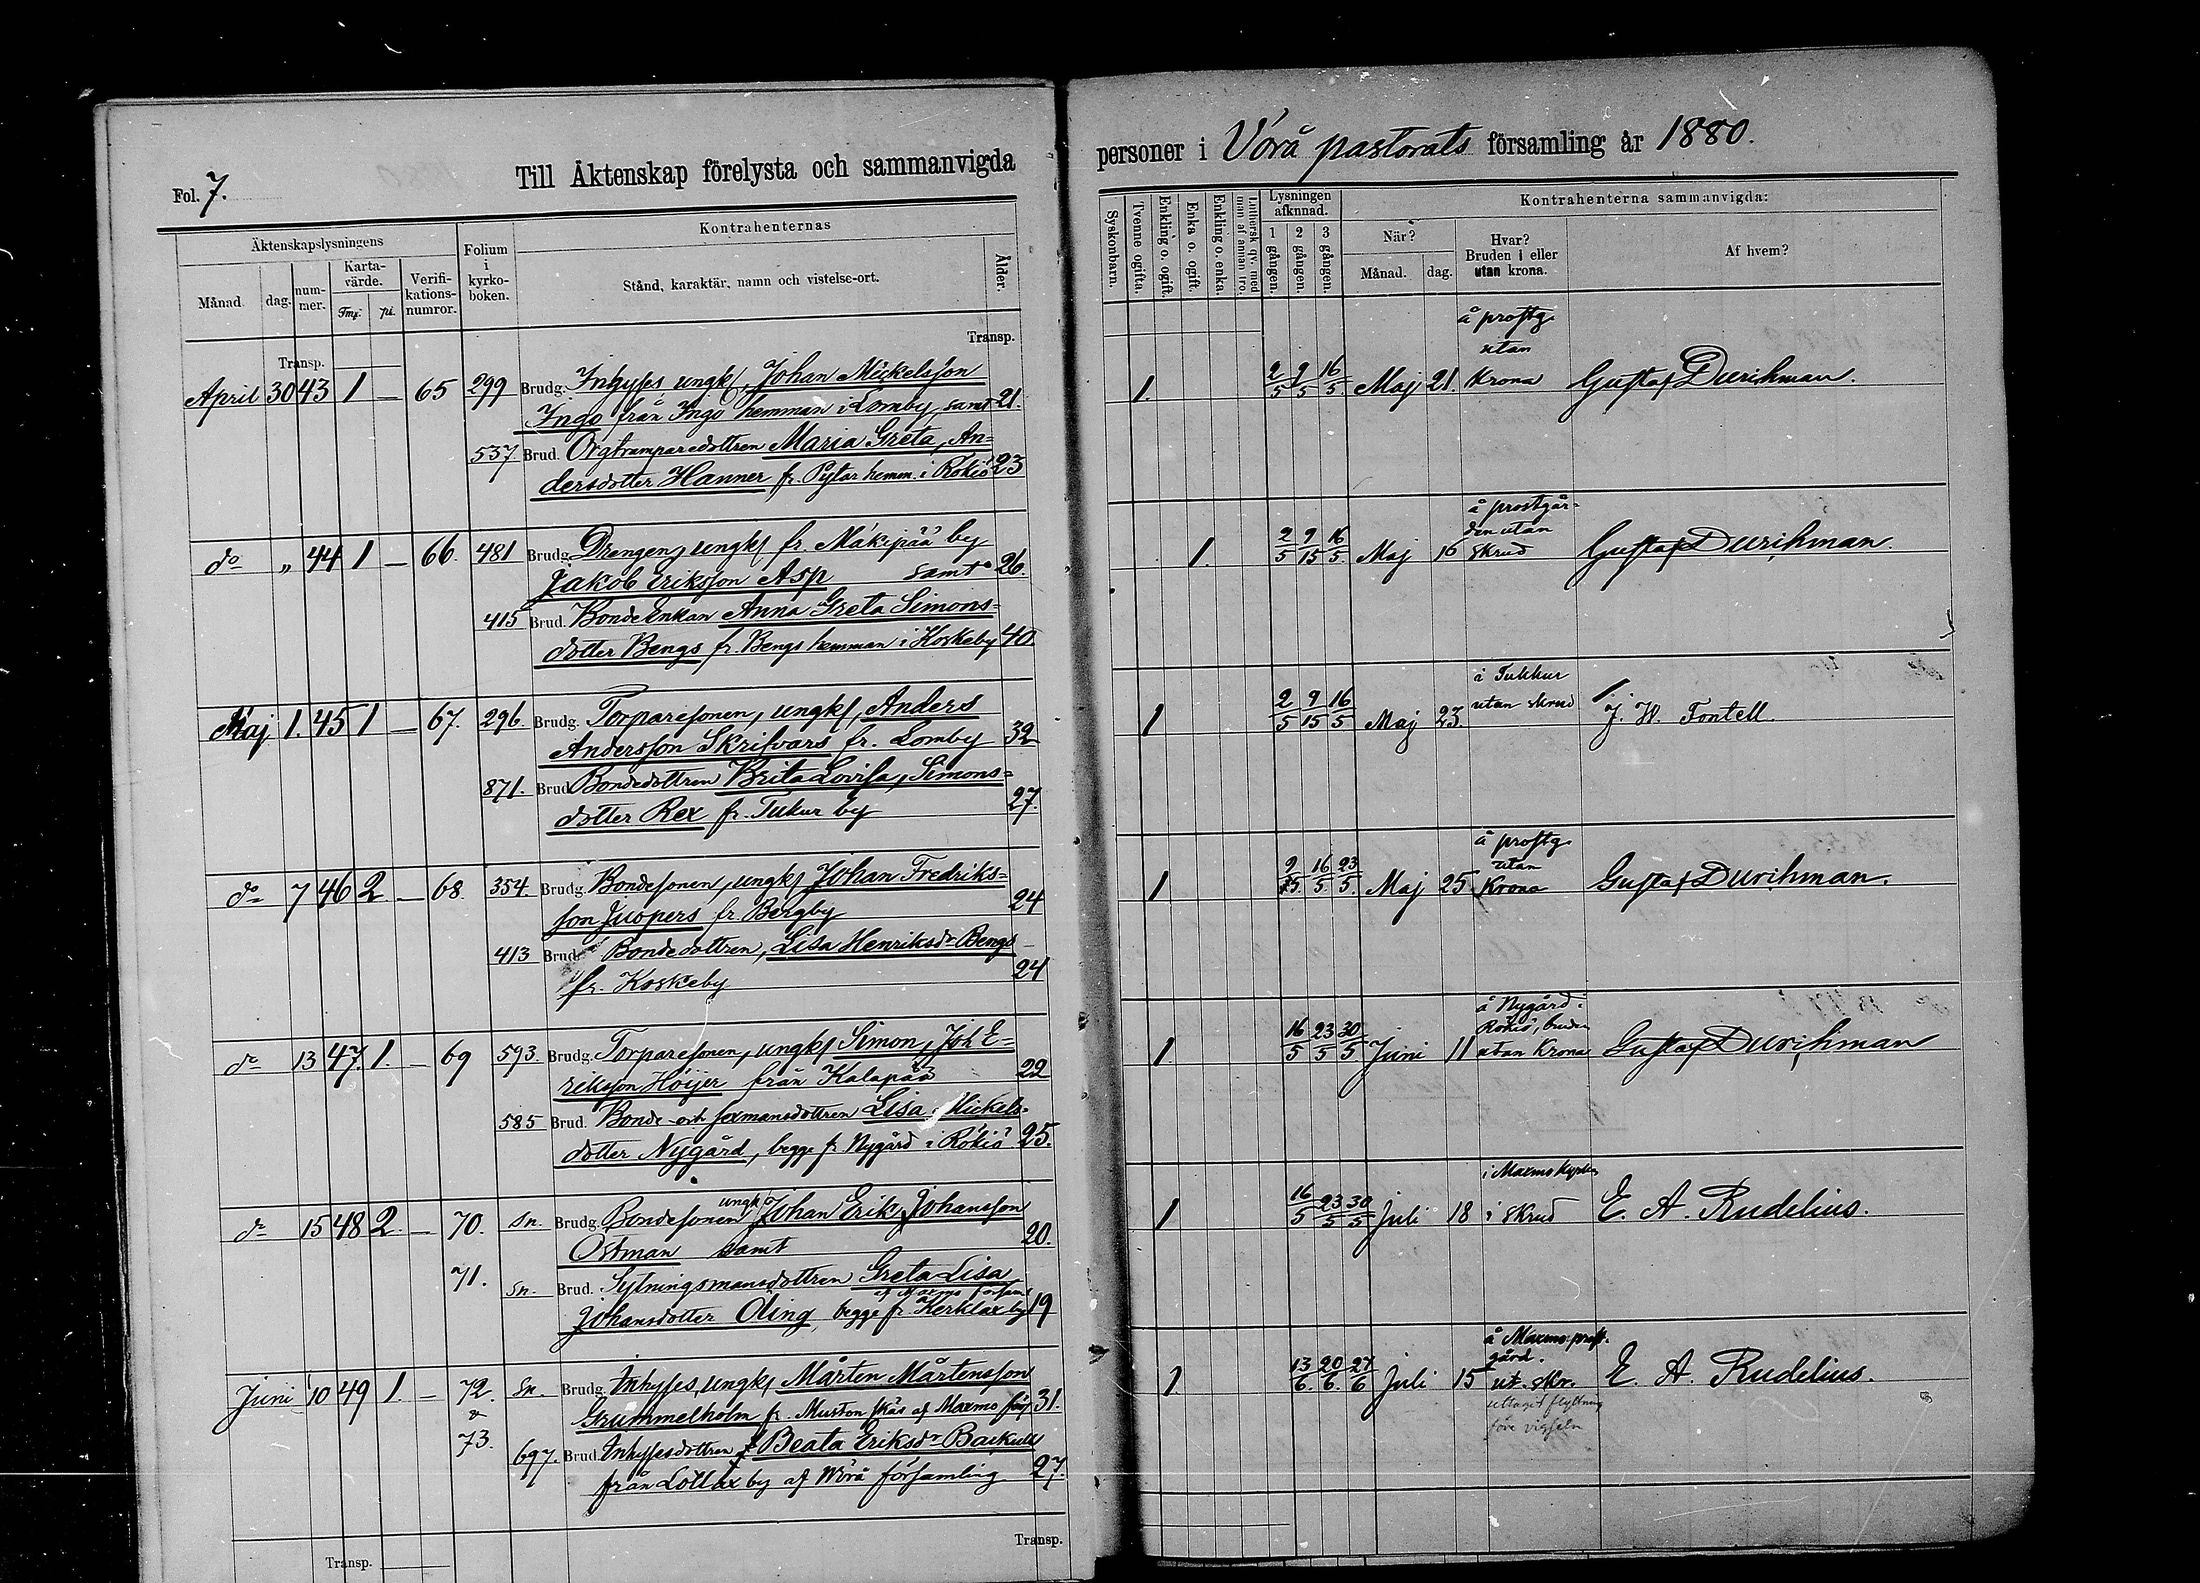 Fol. 7.
Till Äktenskap förelysta och sammanvigda
Äktenskapslysningens
Folium i kyrko-boken.
Kontrahenternas
Månad.
dag.
num-mer.
Karta-värde.
Fmk.
pi.
Verifi-kations-numror.
Stånd, karaktär, namn och vistelse-ort.
Ålder.
Transp.
Transp.
April 30 43 1 — 65 299 Brudg. Inhyses ungk, Johan Mickelsson
Ingo från Ingo hemman i Lomby, samt 21.
537. Brud. Orgtramparedottren Maria Greta, An=
dersdotter Hanner fr. Pytar hemm. i Rökiö 23
do „ 44 1 — 66. 481 Brudg. Drengen, ungk fr. Mäkipää by
Jakob Eriksson Asp samt 26.
415 Brud. BondeEnkan Anna Greta Simons=
dotter Bengs fr. Bengs hemman i Koskeby 40.
Maj 1. 45 1 — 67. 296. Brudg. Torparesonen, ungk, Anders
Andersson Skrifvars fr. Lomby 32
871. Brud Bondedottren Brita Lovisa, Simons=
dotter Rex fr. Tukur by 27.
do 7 46 2 — 68. 354. Brudg. Bondesonen, ungk Johan Fredriks=
son Juopers fr. Bergby 24
413 Brud. Bondedottren, Lisa Henriksdr Bengs
fr. Koskeby 24
do 13 47. 1. — 69 593. Brudg. Torparesonen, ungk Simon, Joh E=
riksson Höijer från Kalapää 22
585 Brud. Bonde och sexmansdottren Lisa Mickels-
dotter Nygård, begge fr Nygård i Rökiö 25.
do 15 48 2. — 70. Sn. Brudg. Bondesonen ungk Johan Erik Johansson
Östman samt 20.
71. Sn. Brud. Sytningsmansdottren Greta Lisa
af Maxmo förs
Johansdotter Oling, begge fr. Kerklax by 19
Juni 10 49 1. — 72. Sn. Brudg. Inhyses, ungk Mårten Mårtensson
Grummelholm fr. af Maxmo förs 31.
& 73.
697. Brud. Inhysesdottren Beata Eriksdr Backull
från Lotlax by af Wörå församling 27.
Transp.
Transp.
personer i Vörå pastorats församling år 1880.
Syskonbarn.
Tvenne ogifta.
Enkling o. ogift.
Enka o. ogift.
Enkling o. enka.
Luthersk qv. med man af annan tro.
Lysningen afknnad.
1 gången.
2 gången.
3 gången.
Kontrahenterna sammanvigda:
När?
Månad.
dag.
Hvar?
Bruden i eller
utan krona.
Af hvem?
å prostg
utan
1. 2/5 9/5 16/5. Maj 21. Krona Gustaf Durchman.
å prostgår-
den utan
1. 2/5 9/15 16/5. Maj 16 skrud Gustaf Durchman.
å Tukkur
utan skrud
1 2/5 9/15 16/5 Maj 23. J. W. Fontell.
å prostg
utan
1 9/5. 16/5 23/5. Maj 25. Krona Gustaf Durchman.
å Nygård i
Rökiö, bruden
1 16/5 23/5 30/5 Juni 11 utan Krona Gustaf Durchman
i Maxmo kyrka
1 16/5 23/5 30/5 Juli 18 i skrud E. A. Rudelius.
å Maxmo prost-
gård.
1 13/6. 20/6. 27/6 Juli 15 ut. skr. E. A. Rudelius.
uttaget flyttning
före vigseln